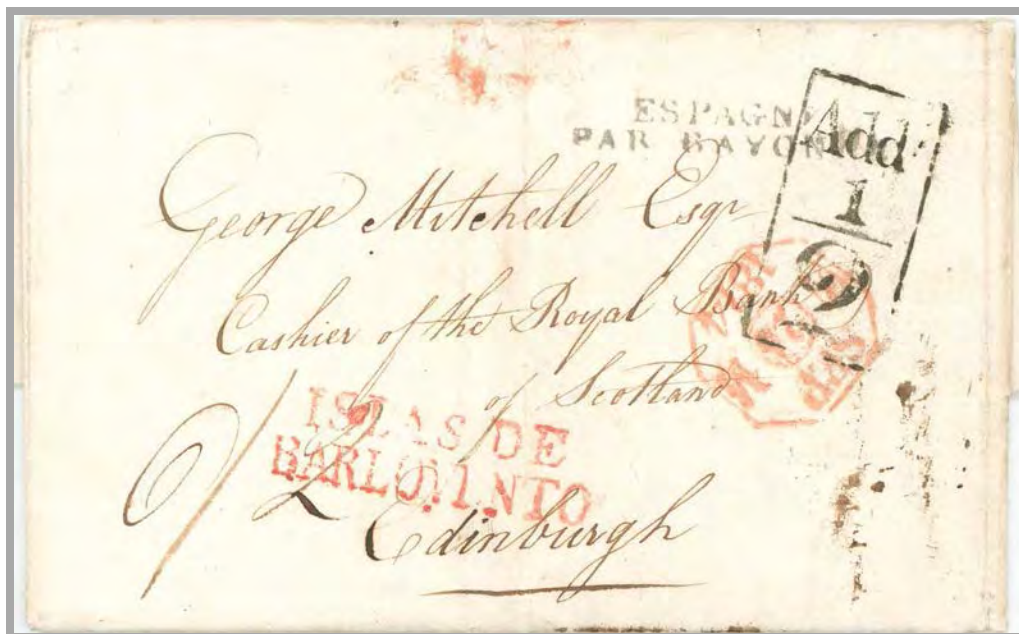 ESPAGNE
PAR BAYONNE
Addl
1
9
George Mitchell Esqr
Cashier of the Royal Bank
of Scotland
ISLAS DE
BARLOVINTO
Edinburgh